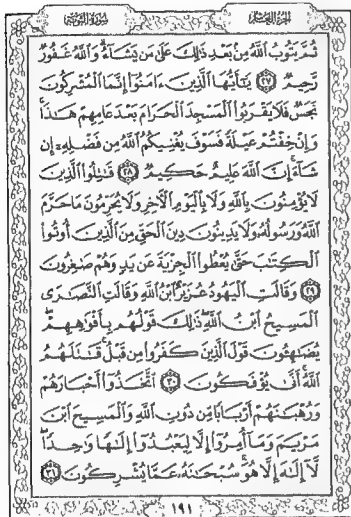 الجزء العاشر
سورة التوبة
ثُمَّ يَتُوبُ اللَّهُ مِنْ بَعْدِ ذَٰلِكَ عَلَىٰ مَن يَشَاءُ وَاللَّهُ غَفُورٌ
رَّحِيمٌ ٢٧ يَٰٓأَيُّهَا الَّذِينَ ءَامَنُوا إِنَّمَا الْمُشْرِكُونَ
نَجَسٌ فَلَا يَقْرَبُوا الْمَسْجِدَ الْحَرَامَ بَعْدَ عَامِهِمْ هَٰذَا
وَإِنْ خِفْتُمْ عَيْلَةً فَسَوْفَ يُغْنِيكُمُ اللَّهُ مِن فَضْلِهِ إِن
شَاءَ إِنَّ اللَّهَ عَلِيمٌ حَكِيمٌ ٢٨ قَٰتِلُوا الَّذِينَ
لَا يُؤْمِنُونَ بِاللَّهِ وَلَا بِالْيَوْمِ الْآخِرِ وَلَا يُحَرِّمُونَ مَا حَرَّمَ
اللَّهُ وَرَسُولُهُ وَلَا يَدِينُونَ دِينَ الْحَقِّ مِنَ الَّذِينَ أُوتُوا
الْكِتَٰبَ حَتَّىٰ يُعْطُوا الْجِزْيَةَ عَن يَدٍ وَهُمْ صَٰغِرُونَ
٢٩ وَقَالَتِ الْيَهُودُ عُزَيْرٌ ابْنُ اللَّهِ وَقَالَتِ النَّصَٰرَى
الْمَسِيحُ ابْنُ اللَّهِ ذَٰلِكَ قَوْلُهُم بِأَفْوَٰهِهِمْ
يُضَٰهِـُٔونَ قَوْلَ الَّذِينَ كَفَرُوا مِن قَبْلُ قَٰتَلَهُمُ
اللَّهُ أَنَّىٰ يُؤْفَكُونَ ٣٠ اتَّخَذُوا أَحْبَارَهُمْ
وَرُهْبَٰنَهُمْ أَرْبَابًا مِّن دُونِ اللَّهِ وَالْمَسِيحَ ابْنَ
مَرْيَمَ وَمَا أُمِرُوا إِلَّا لِيَعْبُدُوا إِلَٰهًا وَٰحِدًا
لَّا إِلَٰهَ إِلَّا هُوَ سُبْحَٰنَهُ عَمَّا يُشْرِكُونَ ٣١
١٩١